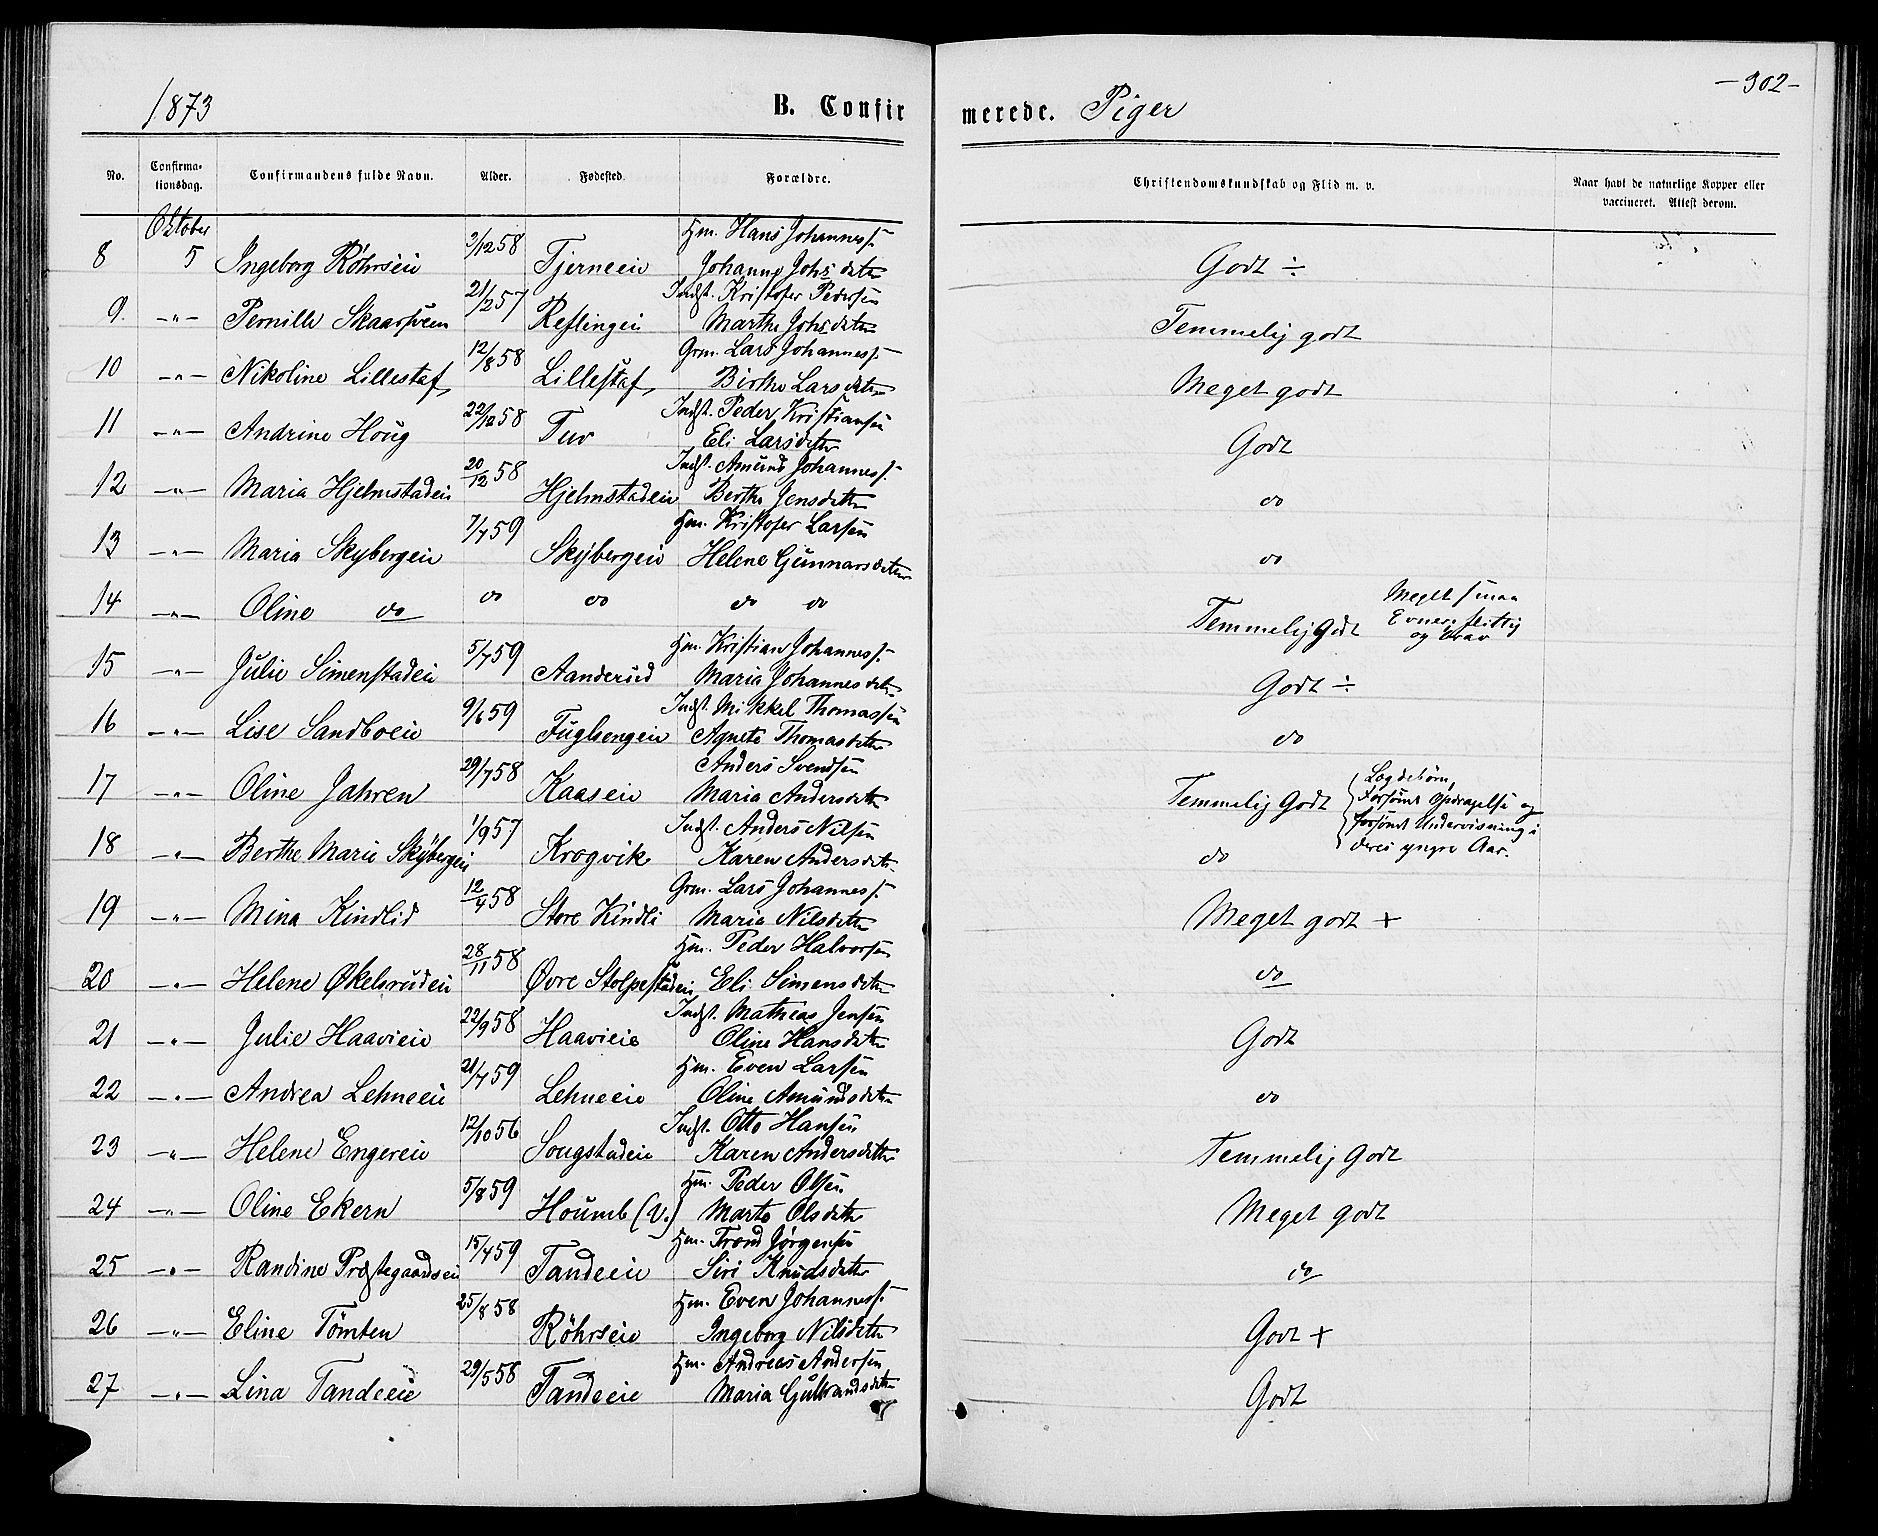 1873 B. Confirmerede. Piger -302-
No. Confirmationsdag. Confirmandens fulde Navn. Alder. Fødested. Forældre. Christendomskundskab og Flid m. v. Naar havt de naturlige Kopper eller vaccineret. Attest derom.
Oktober Hm. Hans Johanness.
8 5 Ingeborg Röhrseie 3/12 58 Tjerneeie Johanne Johsdatter Godt ÷
Indst. Kristofer Pedersen
9. -"- Pernille Skaarsveen 21/2 57 Reflingei Marthe Johsdatter Temmelig godt
Grm. Lars Johanness.
10 -"- Nikoline Lillestaf 12/8 58 Lillestaf Birthe Larsdatter Meget godt
Indst. Peder Kristiansen
11 -"- Andrine Houg 22/12 58 Tuv Eli Larsdatter Godt
Indst. Amund Johanness.
12 -"- Maria Hjelmstadeie 20/12 58 Hjelmstadeie Berthe Jensdatter do
Hm. Kristofer Larsen
13 -"- Maria Skybergeie 7/7 59 Skybergeie Helene Gunnarsdatter do
14 -"- Oline do do do do do Temmelig godt Meget smaa Evner, flittig og brav
Hm. Kristian Johanness.
15 -"- Julie Simenstadeie 5/7 59 Aanderud Maria Johannesdatter Godt ÷
Indst. Mikkel Thomassen
16 -"- Lise Sandboeie 9/6 59 Fuglsengeie Agnete Thomasdatter do
Anders Svendsen
17 -"- Oline Jahren 29/7 58 Kaaseie Maria Andersdatter Temmelig godt Lægdebørn, Forsømt Opdragelse og forsømt Undervisning i deres yngre Aar.
Indst. Anders Nilsen
18 -"- Berthe Marie Skybergeie 1/9 57 Krogvik Karen Andersdatter do
Grm. Lars Johanness.
19 -"- Mina Kindlid 12/4 58 Store Kindli Maria Nilsdatter Meget godt +
Hm. Peder Halvorsen
20 -"- Helene Økelsrudeie 28/11 58 Øvre Stolpestadeie Eli Simensdatter do
Indst. Mathias Jensen
21 -"- Julie Haavieie 22/9 58 Haavieie Oline Hansdatter Godt
Hm. Even Larsen
22 -"- Andrea Lehneeie 21/7 59 Lehneeie Oline Amundsdatter do
Indst. Otto Hansen
23 -"- Helene Engereie 12/10 56 Sougstadeie Karen Andersdatter Temmelig godt
Hm. Peder Olsen
24 -"- Oline Ekern 5/8 59 Houmb (V.) Marte Olsdatter Meget godt
Hm. Trond Jørgensen
25 -"- Randine Præstegaardseie 15/4 59 Tandeeie Siri Knudsdatter do
Hm. Even Johanness.
26 -"- Eline Tömten 25/8 58 Röhrseie Ingeborg Nilsdatter Godt +
Hm. Andreas Andersen
27 -"- Lina Tandeeie 29/5 58 Tandeeie Maria Gulbrandsdatter Godt